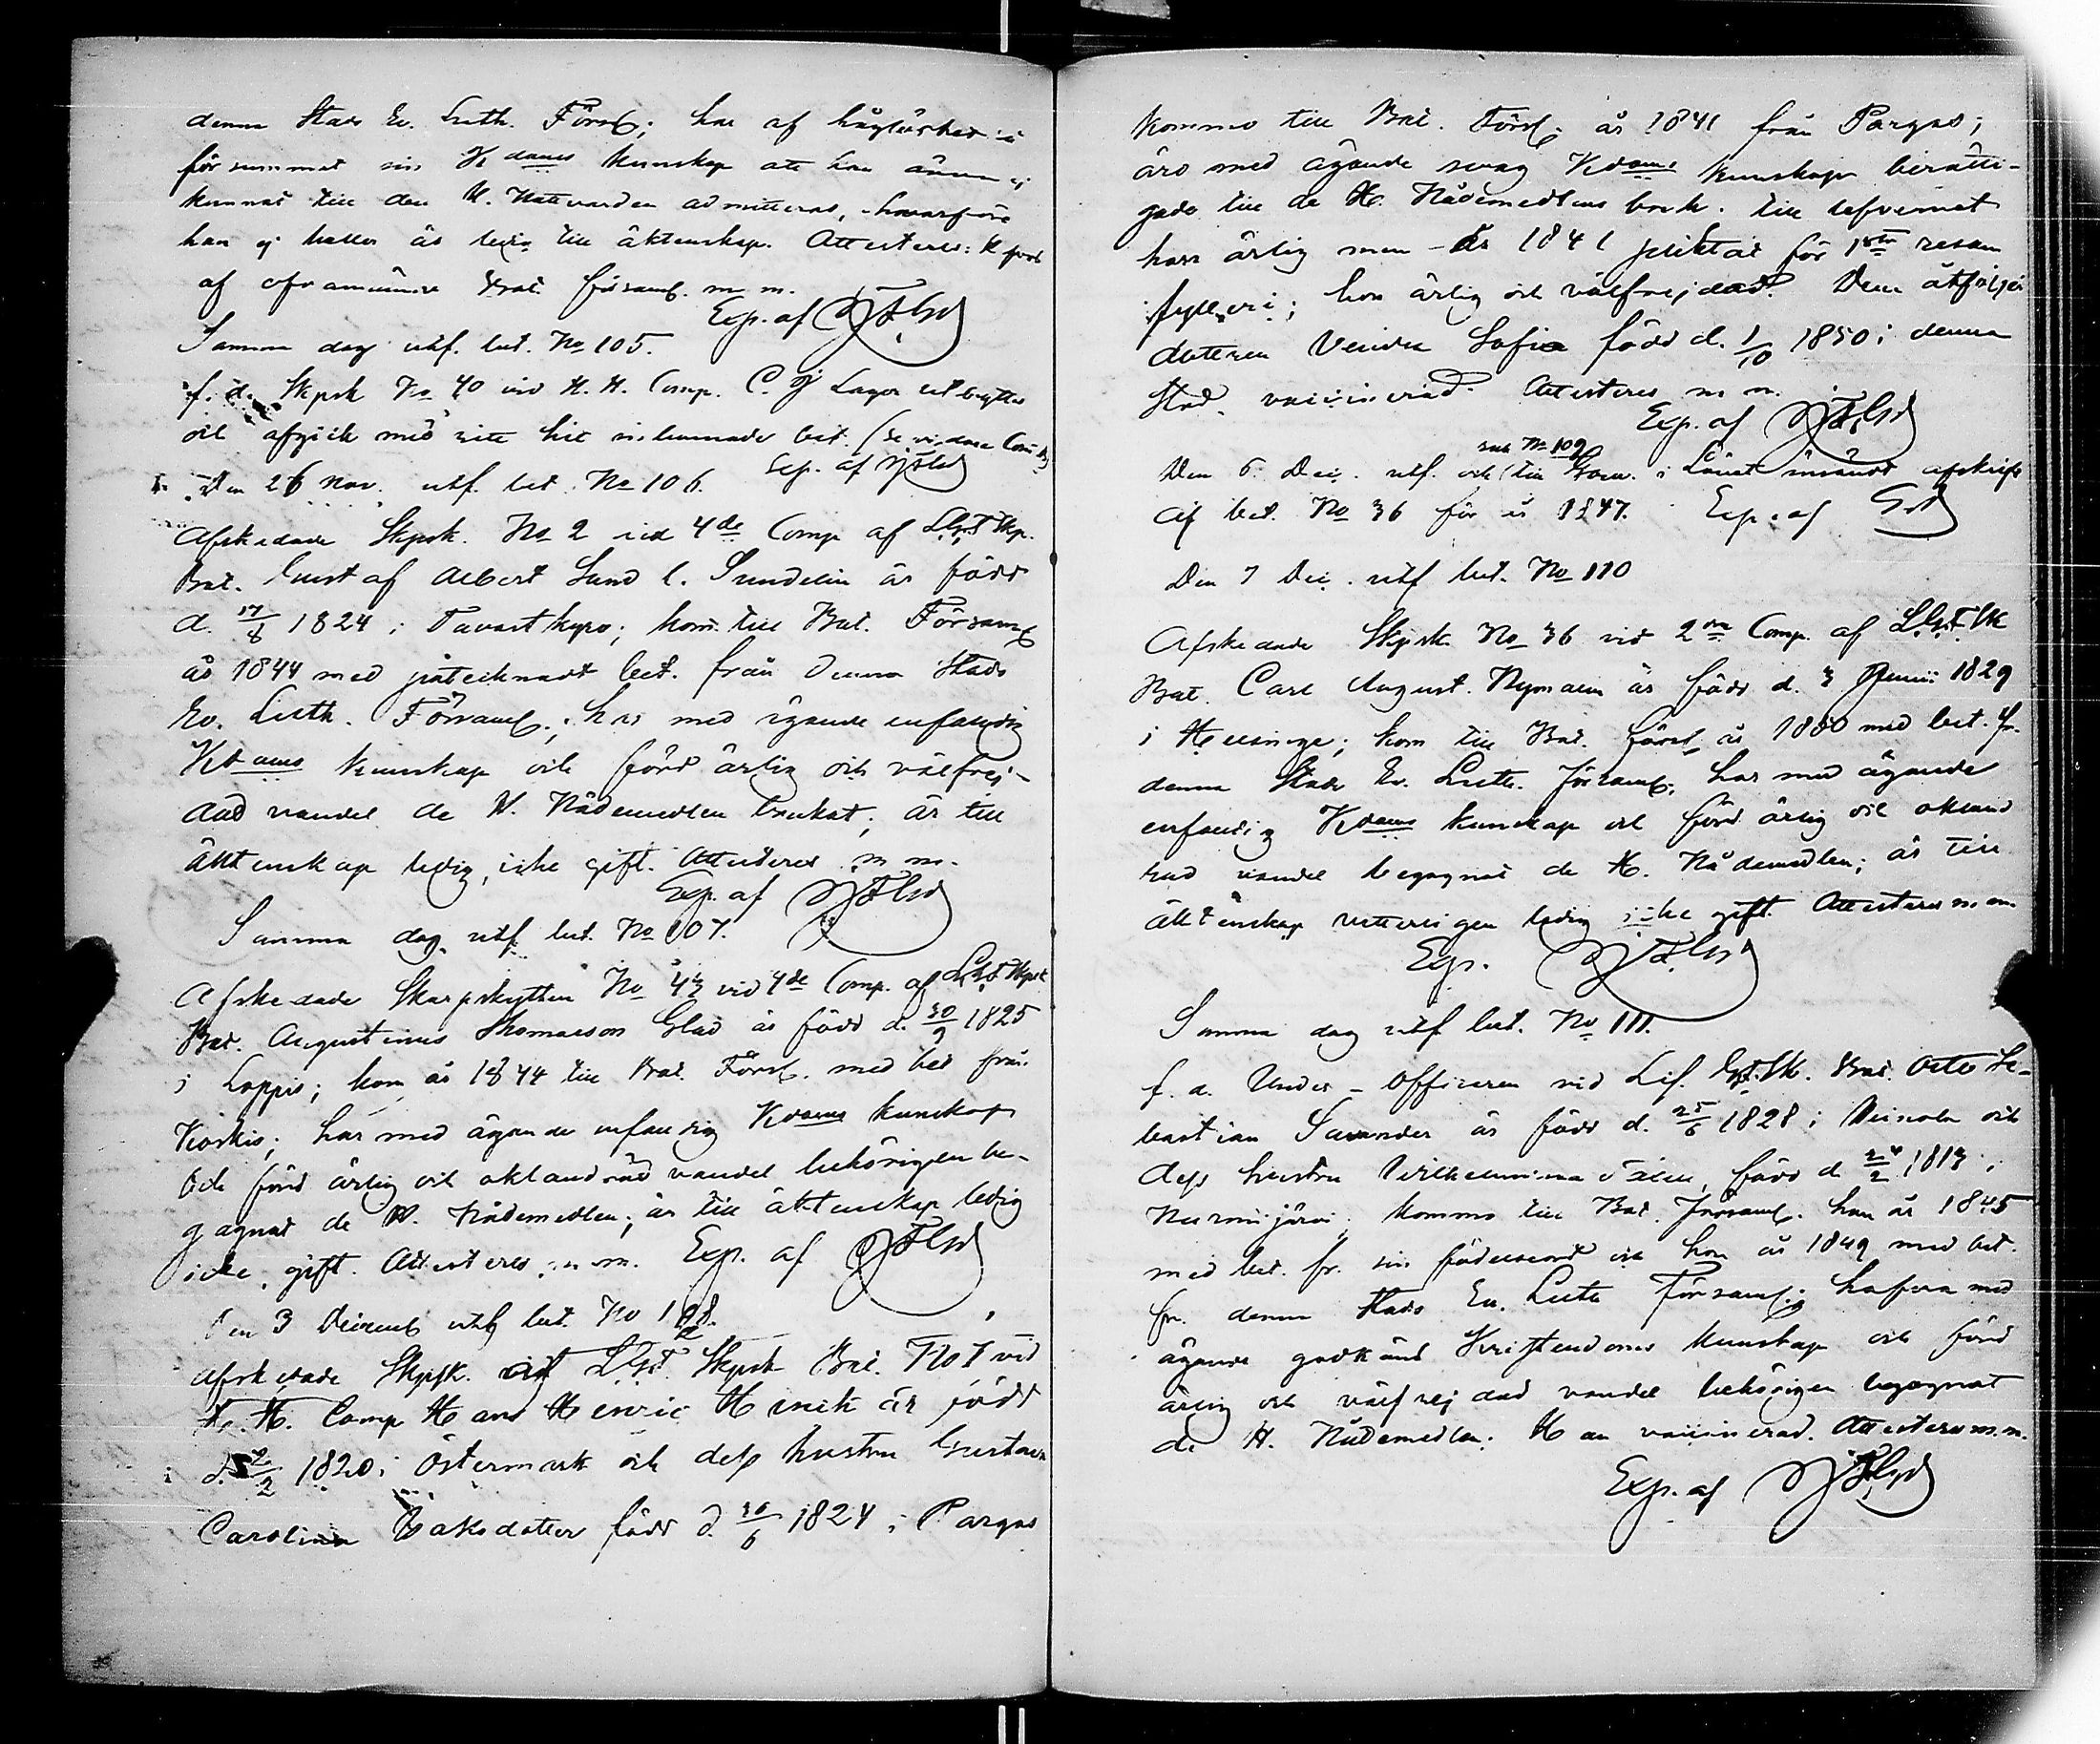 denna Stads Ev. Luth. Förs; har af håglöshet så
försummat sin Kdoms kunskap att han ännu ej
kunnat till den H. Nattvarden admitteras, hvarföre
han ej heller är ledig till äktenskap. Attesteras:
af ofvannämnde Bat. församl. m. m.
Exp. af
Samma dag utf. bet. No 105.
f. d. Skpsk No 40 vid H. H. Comp. C. J Lager utbyttes
och afgick med sitt hit inlemnade bet. (se vidare
Exp. af
Den 26 Nov. utf. bet No 106.
Afskedade Skpsk. No 2 vid 4de Comp af L.G.F. Skp.
Bat. Gustaf Albert Sund l. Sundelin är född
d. 17/8 1824 i Tavastkyro; kom till Bat. Församl
år 1844 med påtecknadt bet. från denna Stads
Ev. Luth. Församl.; har med ägande enfaldig
Kdoms kunskap och förd ärlig och välfrej-
dad vandel de H. Nådemedlen brukat; är till
äktenskap ledig, icke gift. Attesteras m m.
Exp. af
Samma dag utf. bet. No 107.
Afskedade Skarpskytten No 43 vid 4de Comp. af L.G.F. Skpsk
Bat. Augustinus Thomasson Glad är född d. 30/9 1825
i Loppis; kom år 1844 till Bat. Förs. med bet från
Koskis; har med ägande enfaldig Kdoms kunskap
och förd ärlig och oklandrad vandel behörigen be-
gagnat de H. Nådemedlen; är till äktenskap ledig
icke gift. Attesteras m m. Exp. af
Den 3 Decemb utf bet. No 108.
Afskedade Skpsk. vid L.G.F. Skpsk Bat. No 7 vid
H. H. Comp Hans Henric är född
1820 i Östermark och dess hustru Gustava
Carolina Isaksdotter född d. 30/6 1824 i Pargas
kommo till Bat. Förs. år 1841 från Pargas;
äro med ägande svag Kdoms kunskap berätti-
gade till de H. Nådemedlens bruk. till lefvernet
han ärlig men år 1841 pliktat för 1sta resan
fylleri; hon ärlig och välfrejdad. Dem åtföljer
dottren Sofia född d. 1/10 1850 i denna
Stad, vaccinerad. Attesteras m m.
Exp. af
sub No 109
Den 6 Dec. utf. och till i Länet insänd afskrift
af bet. No 36 för år 1847. Exp. af
Den 7 Dec. utf bet. No 110
Afskedade Skpsk No 36 vid 2dra Comp. af L.G.F. Sk
Bat. Carl August Nyman är född d. 3 Junii 1829
i Helsinge; kom till Bat. förs. år 1850 med bet. fr.
denna Stads Ev. Luth. Församl. har med ägande
enfaldig Kdoms kunskap och förd ärlig och okland
rad vandel begagnat de H. Nådemedlen; är till
äktenskap veterligen ledig icke gift. Attesteras m m
Exp.
Samma dag utf bet. No 111.
f. d. Under-Officeren vid Lif. G.F. Sk. Bat. Otto Se-
bastian Savander är född d. 25/6 1828 i och
dess hustru Vilhelmina född d 1813 i
Nurmijärvi; kommo till Bat. Församl. han år 1845
med bet. fr. sin födelseort och hon år 1849 med bet.
fr. denna Stads Ev. Luth Församl; hafva med
ägande godkänd Kristendoms kunskap och förd
ärlig och välfrejdad vandel behörigen begagnat
de H. Nådemedlen. Han vaccinerad. Attesteras m.m.
Exp. af